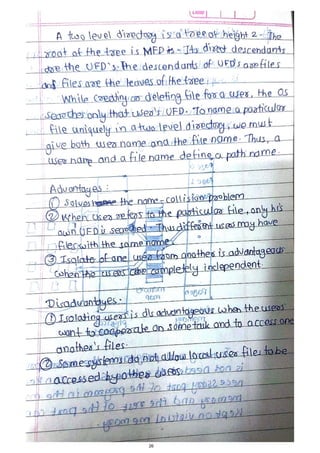 Date
A two level directory is a tree of height 2 - The
root of the tree is MFD is - Its direct descendants
are the UFD's. The descendants of UFD's are files
and files are the leaves of the tree.
While Creating or deleting file for a user, the OS
searches only that user's UFD. To name a particular
file uniquely in a two level directory, we must
give both user name and the file name. Thus, a
user name and a file name define a path name
Advantages :
① Solves the name-collision problem
② When User refers to the particular file, only his
own UFD is searched. Thus different users may have
files with the same name.
③ Isolate of one user from another is advantageous
when the users are completely independent
Disadvantages.
① Isolating users is disadvantageous when the users
want to cooperate on some task and to access one
another's files.
② Some systems do not allow local user files to be
accessed by other users.
26